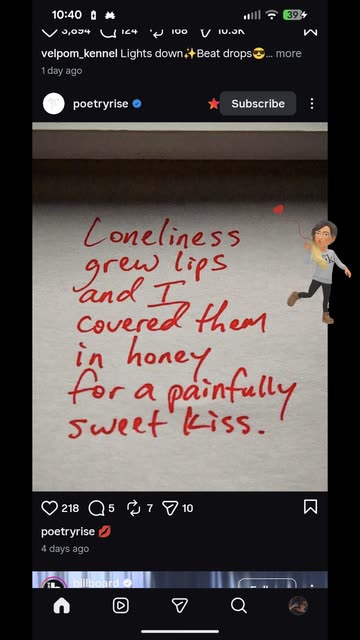 10:40
39
3,894 124 168 10.3K
velpom_kennel Lights down✨Beat drops😎... more
1 day ago
poetryrise
Subscribe
Loneliness
grew lips
and I
covered them
in honey
for a painfully
sweet kiss.
218 5 7 10
poetryrise 💋
4 days ago
billboard